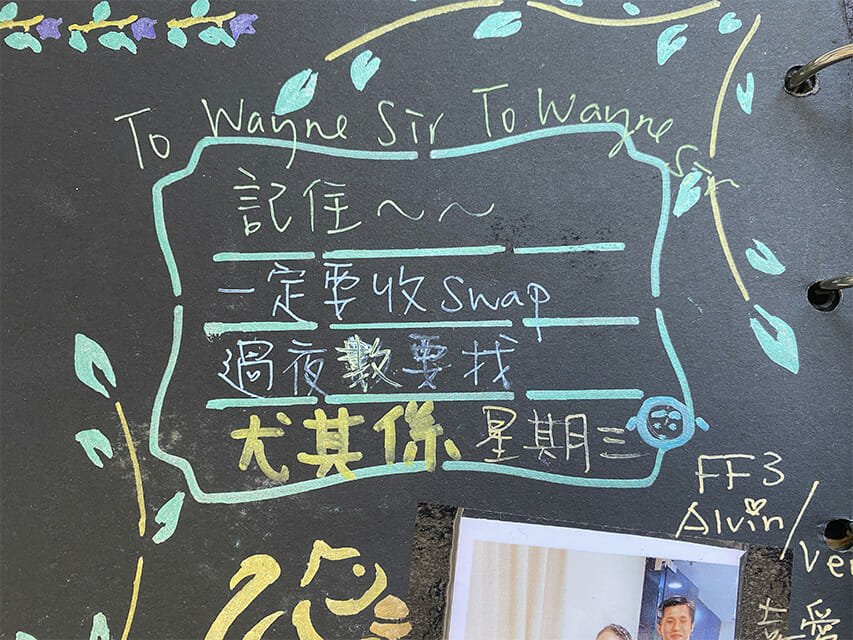 To Wayne Sir To Wayne Sir
記住~~
一定要收swap
過夜數要找
尤其係星期三
FF3
Alvin/
Ver
愛